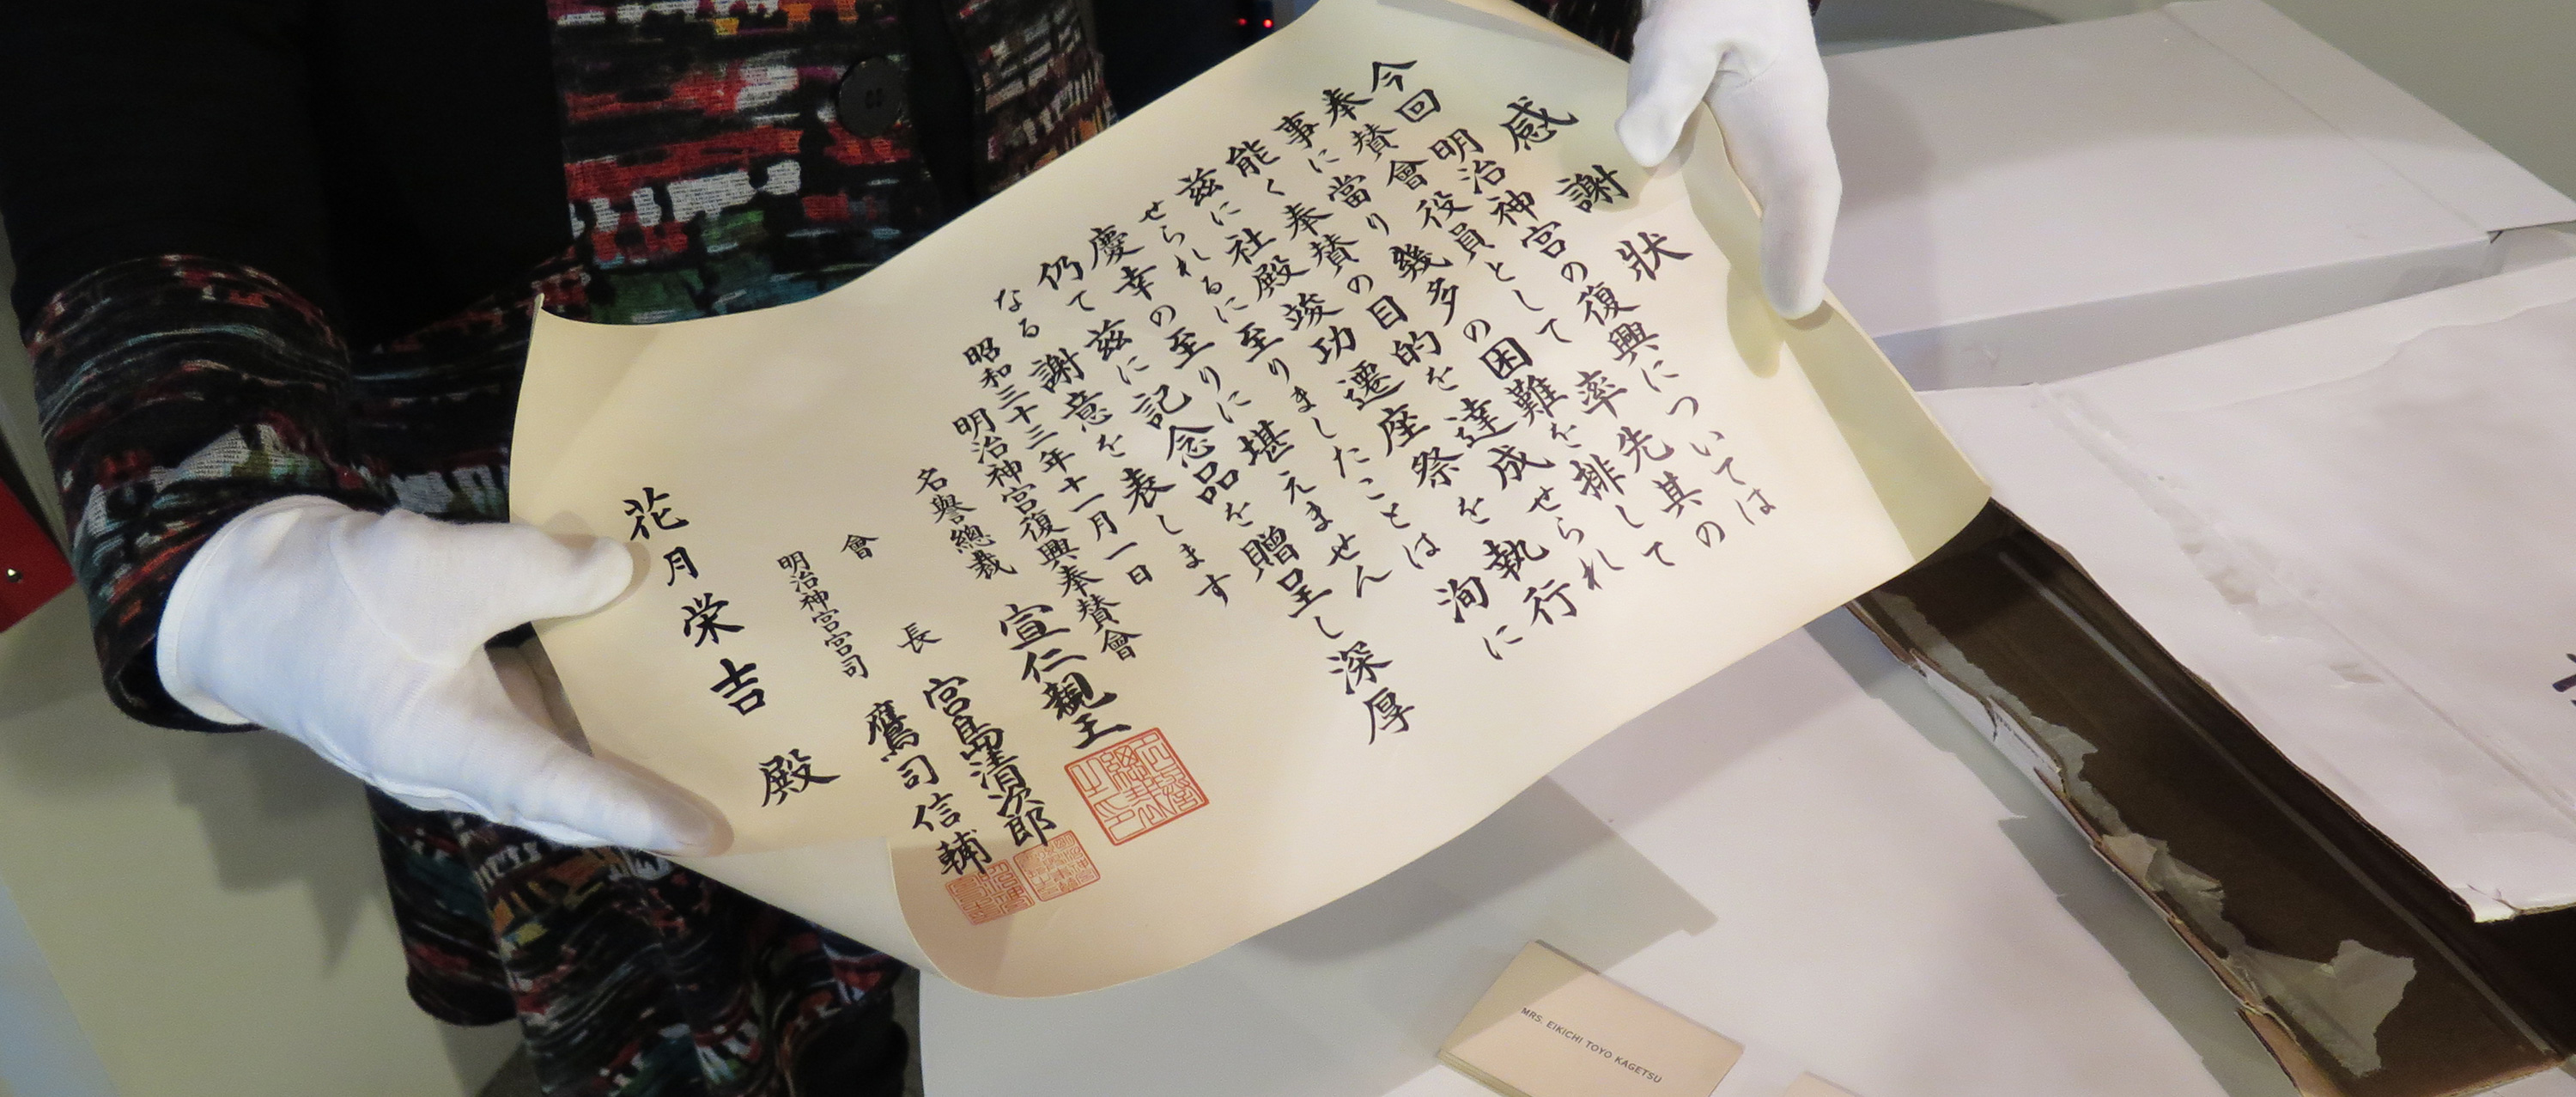 感謝狀
今回明治神宮の復興については
奉賛會役員として率先其の
事に當り幾多の困難を排して
能く奉賛の目的を達成せられ
茲に社殿竣功遷座祭を執行
せられるに至りましたことは洵に
慶幸の至りに堪えません
仍て茲に記念品を贈呈し深厚
なる謝意を表します
昭和三十三年十一月一日
明治神宮復興奉賛會
名譽總裁 宣仁親王
會長 宮島清次郎
明治神宮宮司 鷹司信輔
花月栄吉殿
MRS. EIKICHI TOYO KAGETSU